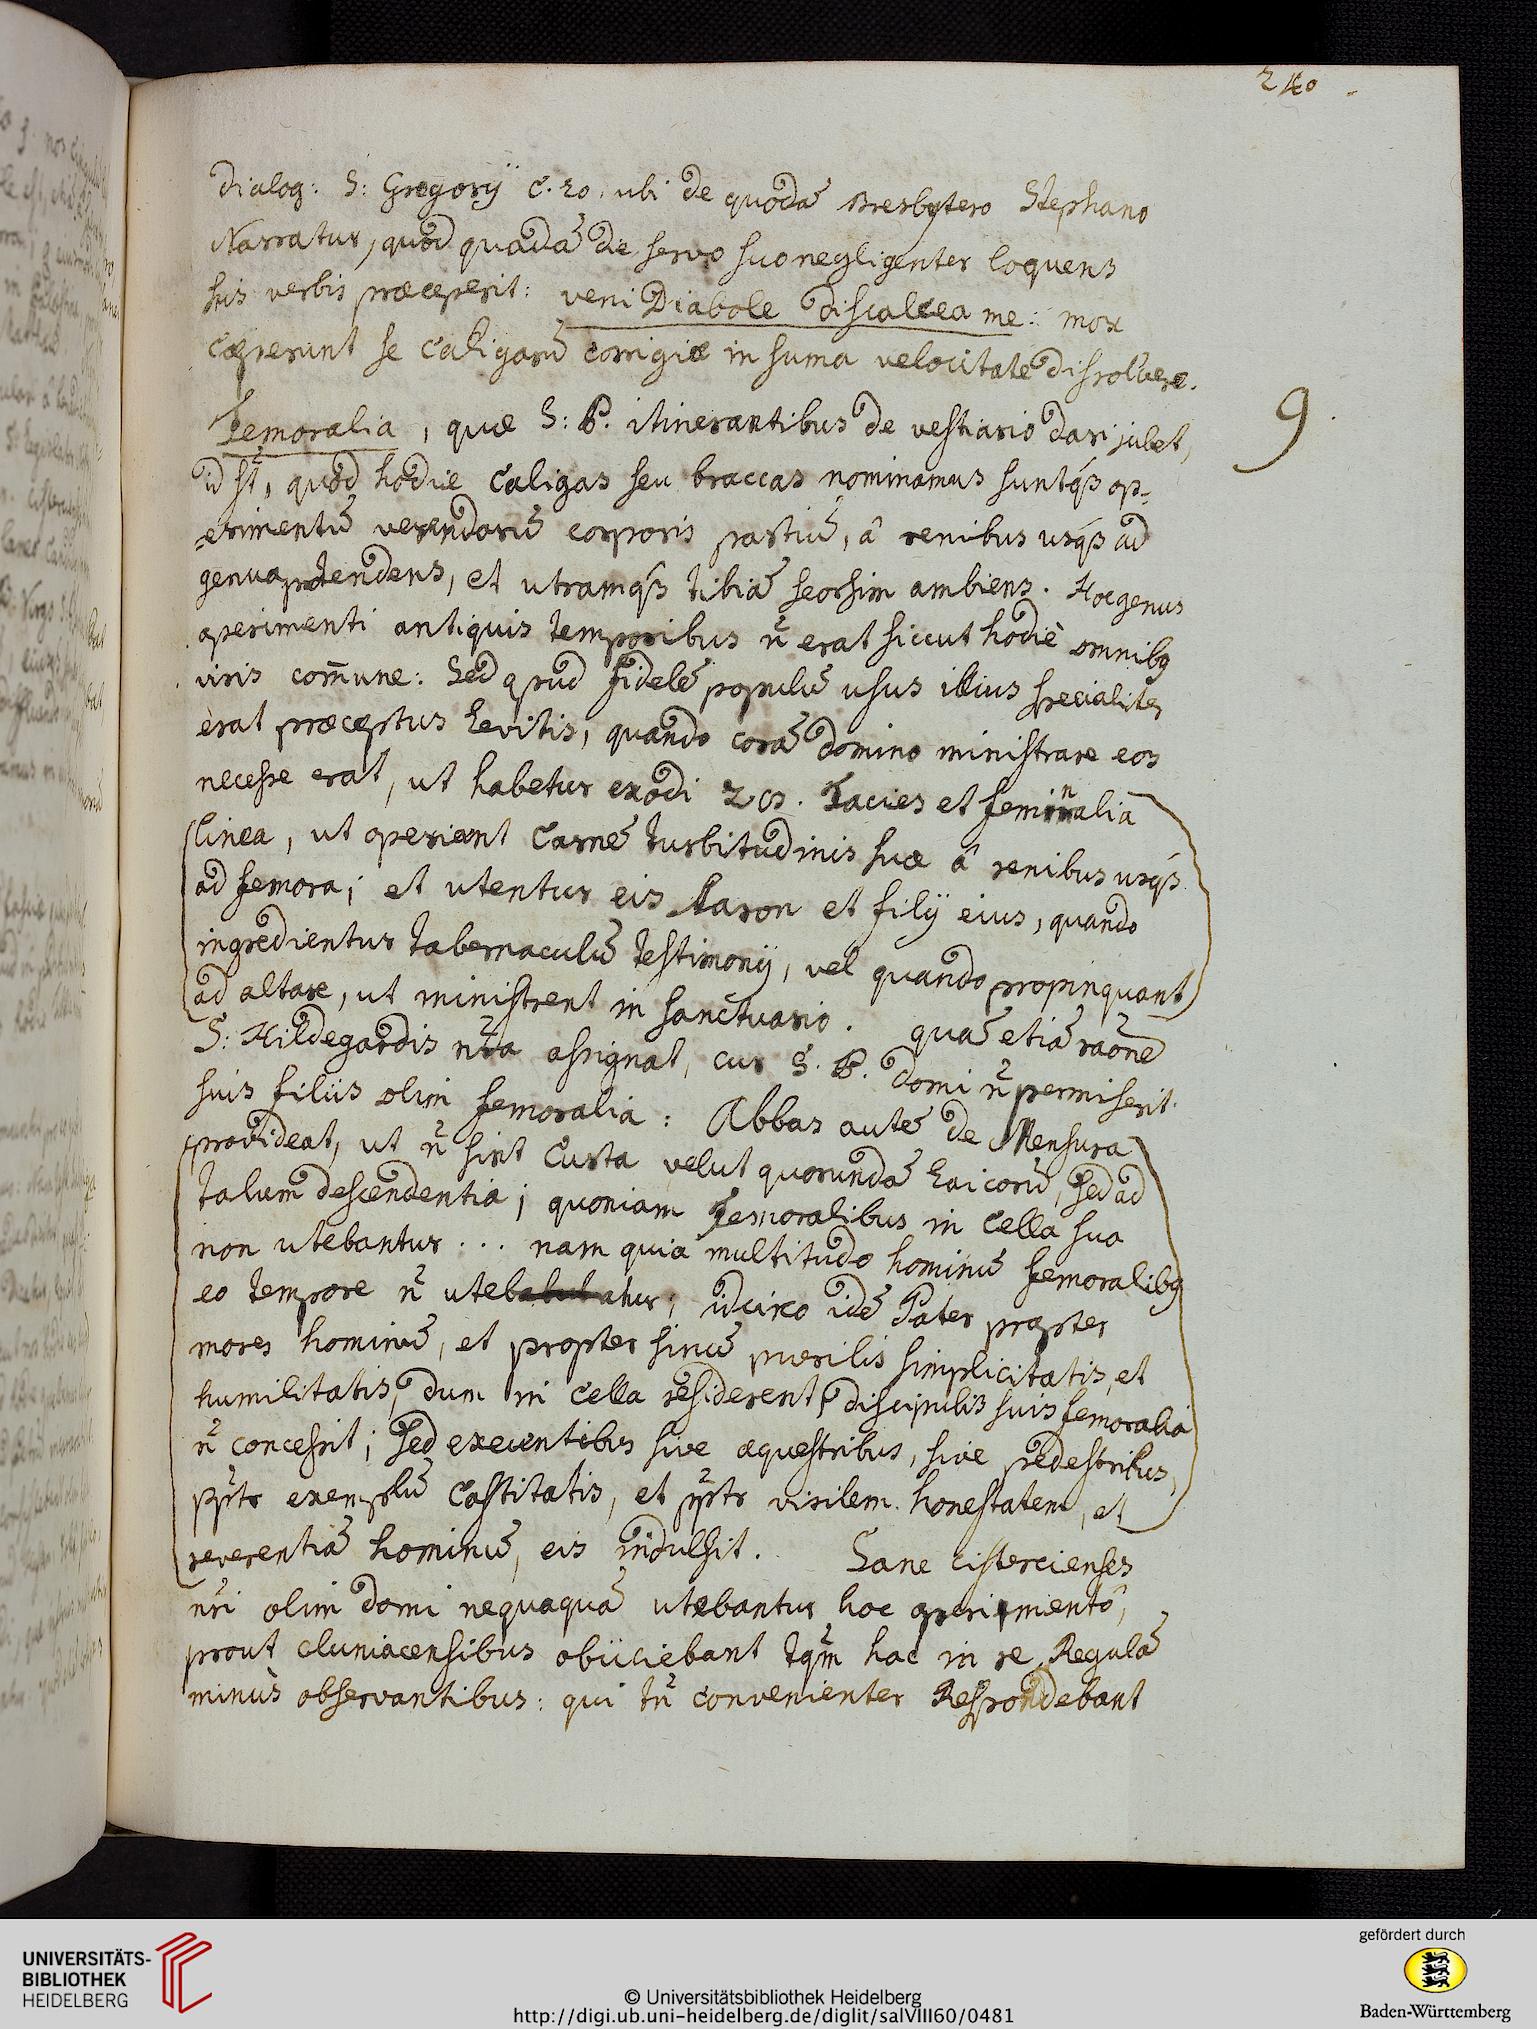 240
dialog: S: Gregorÿ c. 20. ubi de quodā Presbytero Stephano
Narratur, quod quadā die servo suo negligenter loquens
his verbis præceperit: veni Diabole discalcea me: mox
cæperunt se caligarū corrigiæ in suma velocitate dissolvere.
9
Femoralia, quæ S: P. itinerantibus de vestiario dari jubet,
id st, quod hodie Caligas seu braccas nominamus suntq́s op-
-erimentū verendorū corporis partiū, â renibus usq́s ad
genua protendens, et utramq́s tibiā seorsim ambiens. Hoc genus
operimenti antiquis temporibus ñ erat siccut hodiè omnibg
viris com̄une: Sed apud fidelē populū usus illius specialiter
erat præceptus Levitis, quando corā domino ministrare eos
necesse erat, ut habetur exodi 28. Facies et feminalia
linea, ut operiant Carnē turbitudinis suæ â renibus usq́s
ad femora; et utentur eis Aaron et filÿ eius, quando
ingredientur tabernaculū testimonÿ, vel quando propinquant
ad altare, ut ministrent in sanctuario. quā etiā raõnē
S: Hildegardis nr̃a assignat, cur S. P. domi ñ permiserit
suis filiis olim femoralia: Abbas autē de Mensura
provideat, ut ñ sint Curta velut quorundā Laicorū, sed ad
talum descendentia; quoniam Femoralibus in cella sua
non utebantur... nam quia multitudo hominū femoralibg
eo tempore ñ utebatur; idcirco idē Pater propter
mores hominū, et propter sinū puerilis simplicitatis, et
humilitatis, dum in cella residerent, discipulis suis femoralia
ñ concessit; sed exeuntibus sive æquestribus, sive pedestribus,
pp̃tr exemplū Castitatis, et pp̃tr virilem honestatem, et
reverentiā hominū, eis indulsit. Sane cistercienses
nr̃i olim domi nequaquā utebantur hoc operimentô,
prout cluniacensibus obiiciebant tq̃m hac in re Regulā
minùs observantibus: qui tñ convenienter Respondebant
UNIVERSITÄTS-
BIBLIOTHEK
HEIDELBERG
© Universitätsbibliothek Heidelberg
http://digi.ub.uni-heidelberg.de/diglit/salVIII60/0481
gefördert durch
Baden-Württemberg